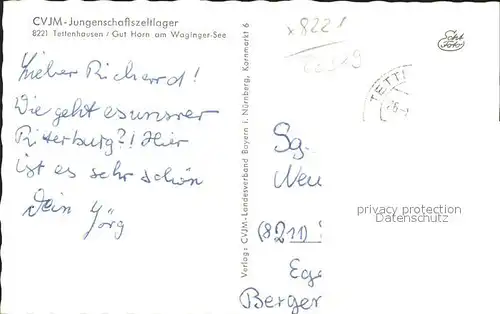 CVJM-Jungenschaftszeltlager
8221 Tettenhausen / Gut Horn am Waginger-See
Lieber Richard!
Wie geht es unsrer
Ritterburg?! Hier
ist es sehr schön
Dein Jörg
Verlag: CVJM-Landesverband Bayern i. Nürnberg, Kornmarkt 6
x8221
Echt
Foto
TETT
Sg.
Neu
privacy protection
Datenschutz
(8211)
Eg
Berger